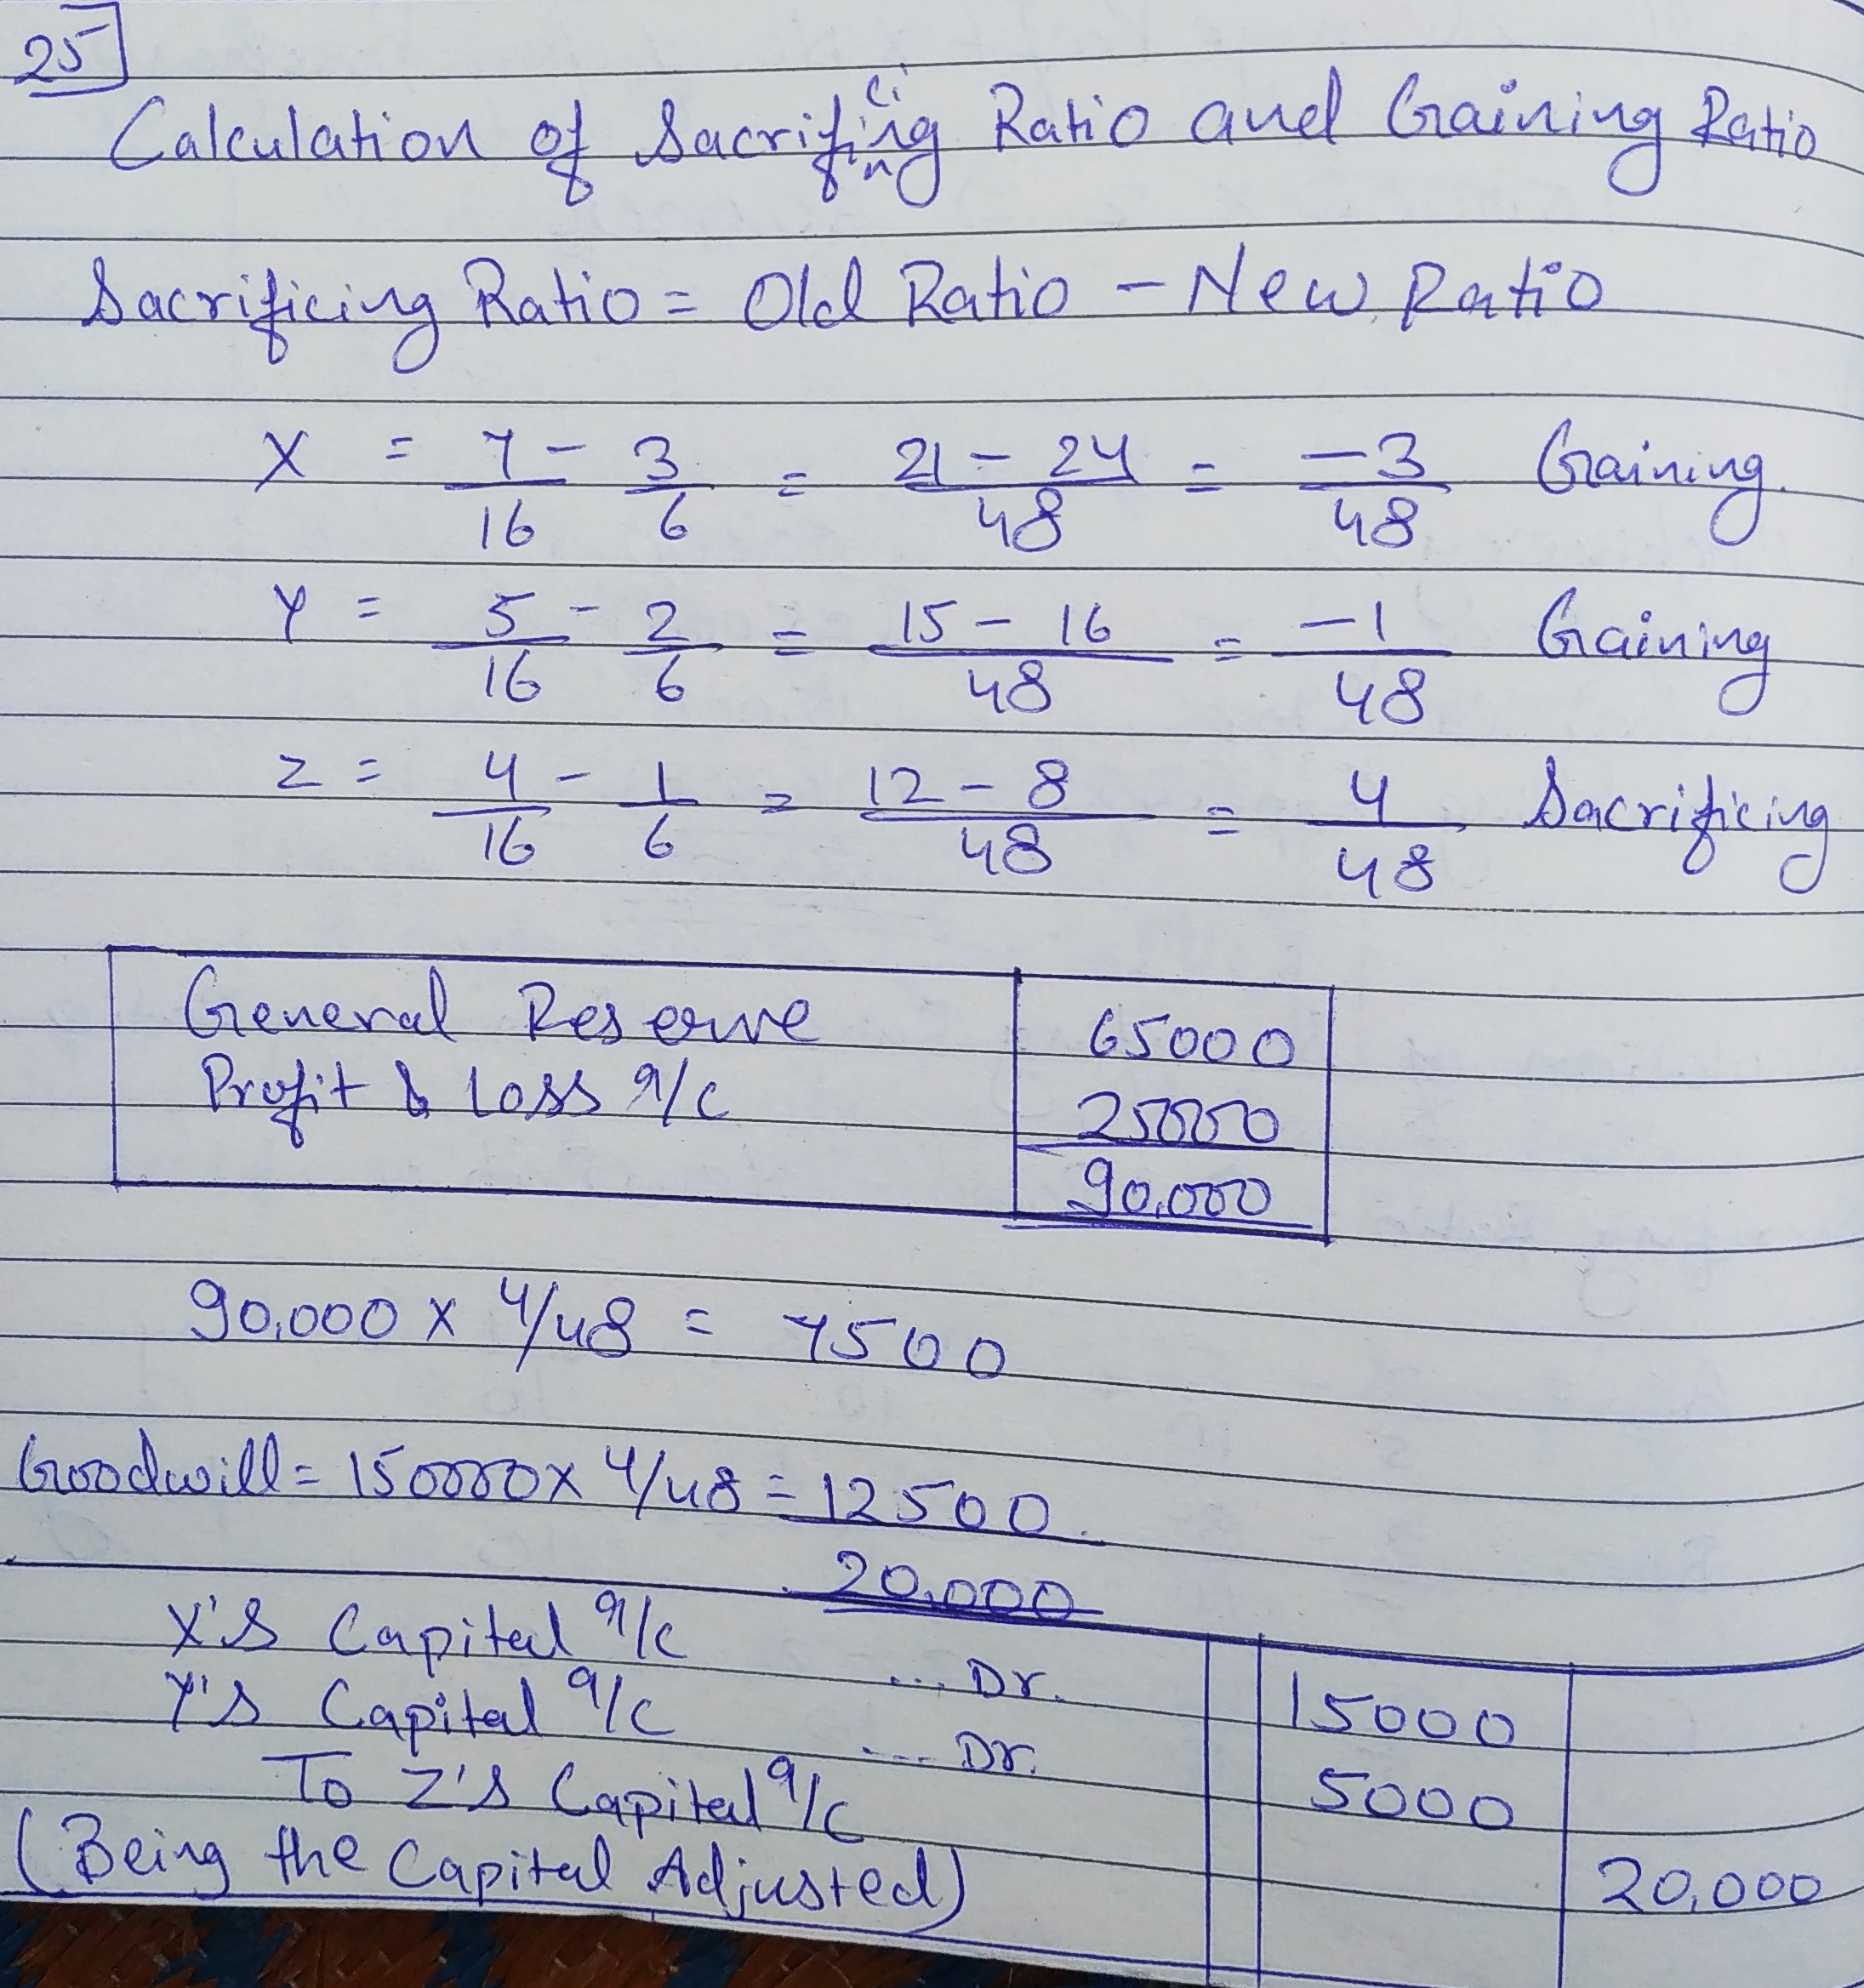 25
Calculation of Sacrificing Ratio and Gaining Ratio
Sacrificing Ratio = Old Ratio - New Ratio
X = 7/16 - 3/6 = 21 - 24/48 = -3/48 Gaining
Y = 5/16 - 2/6 = 15 - 16/48 = -1/48 Gaining
Z = 4/16 - 1/6 = 12 - 8/48 = 4/48 Sacrificing
General Reserve 65000
Profit & Loss a/c 25000
90,000
90,000 x 4/48 = 7500
Goodwill = 150000 x 4/48 = 12500
20,000
X's Capital a/c ... Dr. 15000
Y's Capital a/c ... Dr. 5000
To Z's Capital a/c 20,000
(Being the Capital Adjusted)